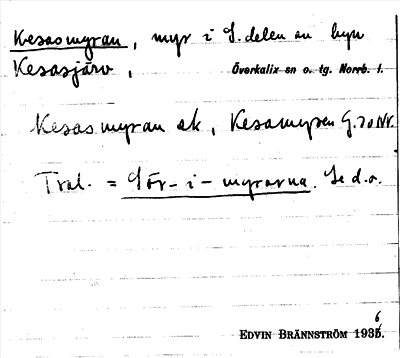 Kesasmyran, myr i S. delen av byn
Kesasjärv,
Överkalix sn o. tg. Norrb. l.
Kesasmyran ek, Kesamyren G. 70 Nr.
Tral. = Sör-i-myrarna. Se d.o.
6
EDVIN BRÄNNSTRÖM 1935.